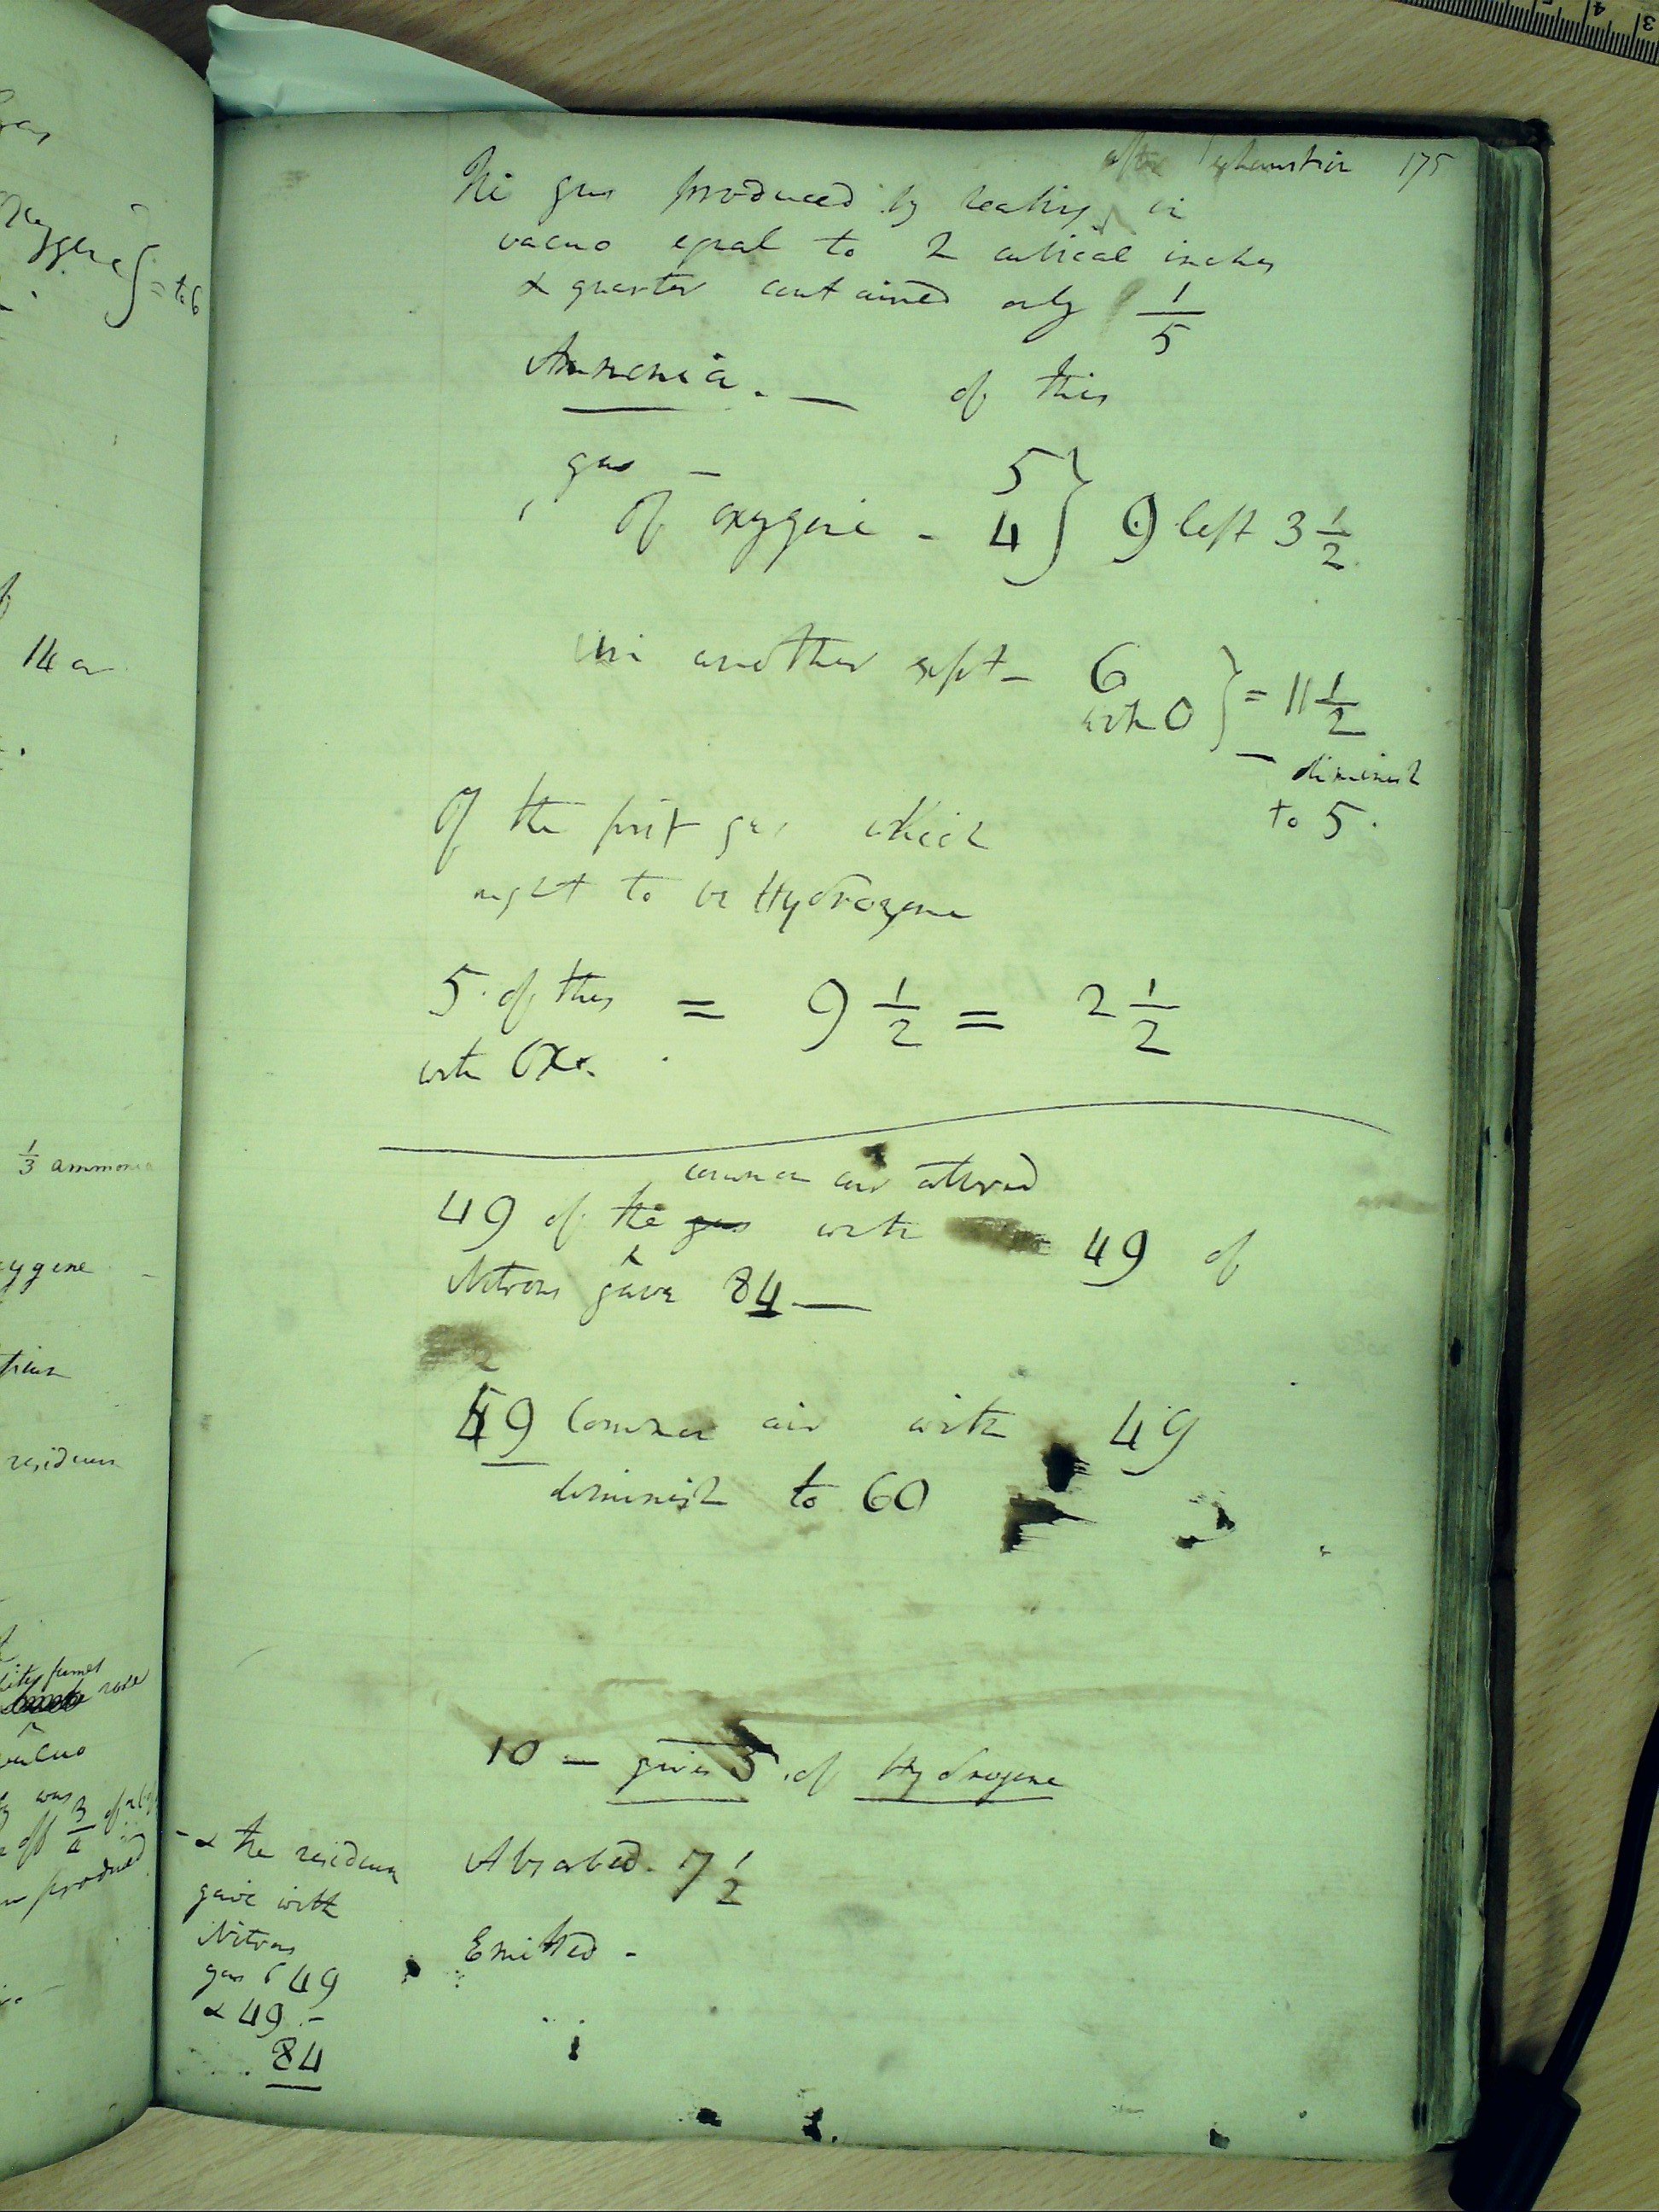 175
after exhaustion
The gas produced by heating in
vacuo equal to 2 cubical inches
& quarter contained only 1/5
Ammonia. — of this
gas — 5
of oxygene - 4 } 9 left 3 1/2
in another expt - 6
with O } = 11 1/2
— diminish
to 5.
Of the first gas which
ought to be Hydrogene
5 of this = 9 1/2 = 2 1/2
with Ox.
common air altered
49 of the gas with 49 of
Nitrous gave 84 —
59 Common air with 49
diminish to 60
10 — gives 5 of Hydrogene
Absorbed. 7 1/2
Emitted -
- & the residuum
gave with
Nitrous
gas 49
& 49 -
84
= to 6
14
1/3 ammonia
residuum
fumes
rose
was
3/4 of
produced